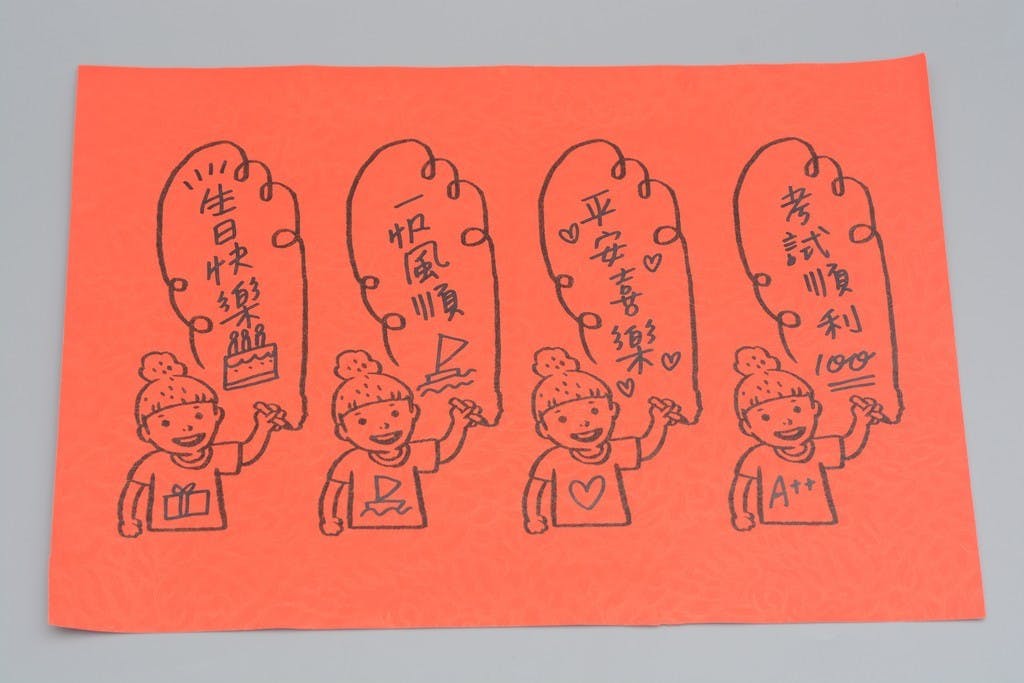 生日快樂
一帆風順
平安喜樂
考試順利
100
A++